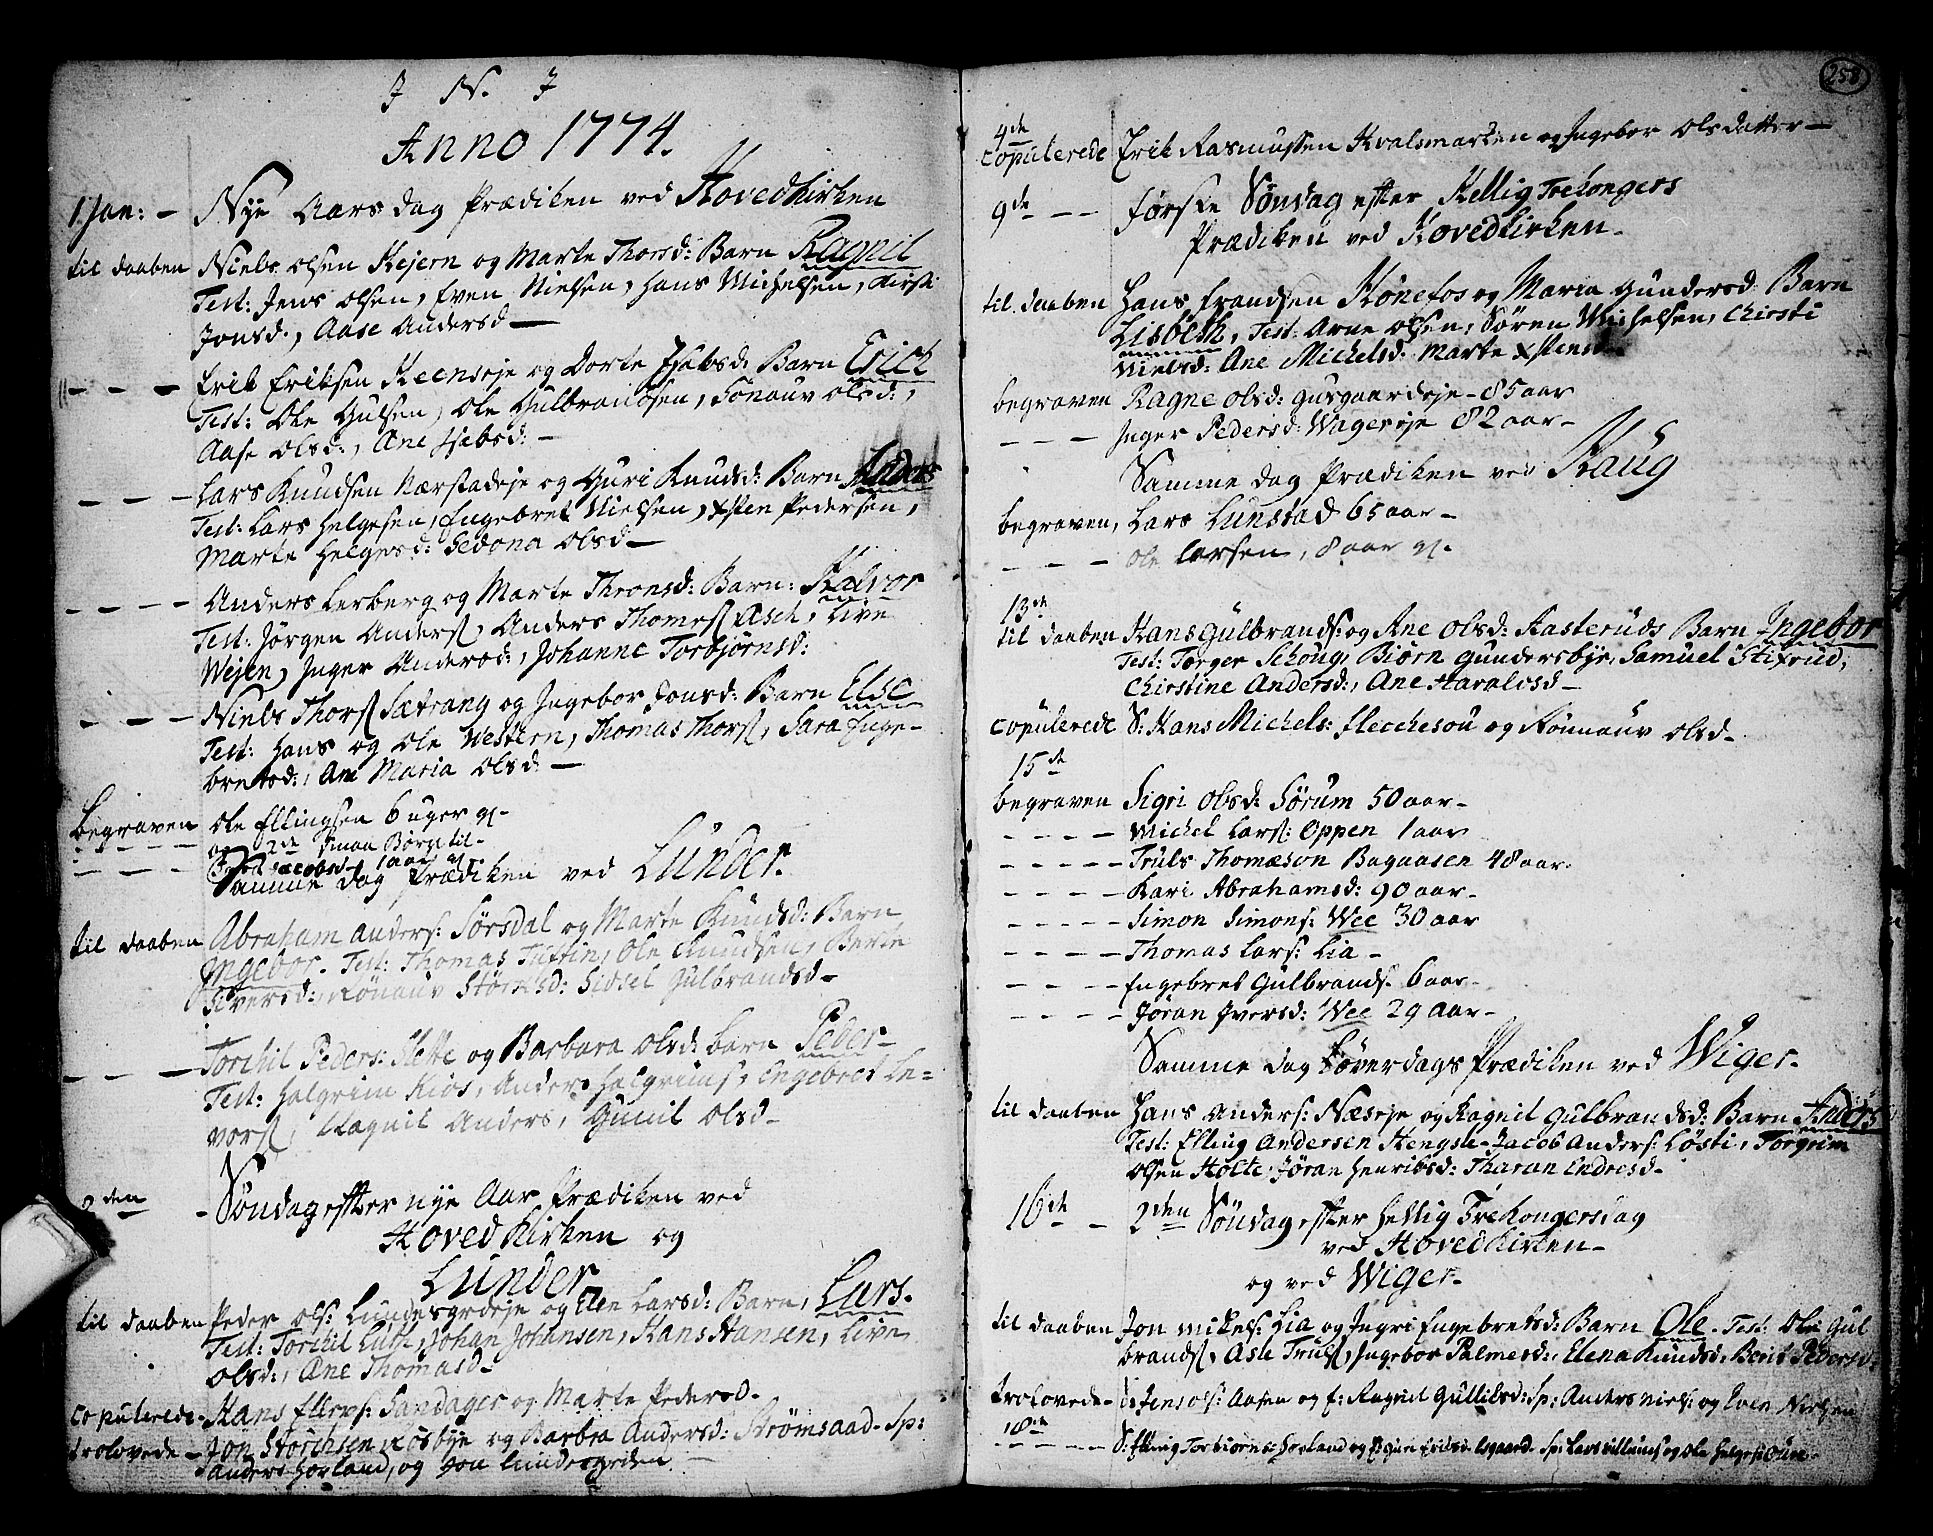 J N. J
Anno 1774.
1. Jan: - Nye Aars dag Prædiken ved Hovedkirken
til daaben Niels olsen Hejern og Marte Thorsd: Barn Ragnil
Test: Jens olsen, Even Nielsen, Hans Michelsen, Kirsti
Jonsd:, Aase Andersd -
- - - Erik Eriksen Heenseje og Dorte Barn Erich
Test: Ole Hulsen, Ole Gulbrandsen, Olsd:,
Aase Olsd:, Ane
- - - Lars Knudsen Nærstadeje og Guri Knudsd: Barn Anders
Test: Lars Helgesen, Engebret Nielsen, Xsten Pedersen,
Marte Helgesd: Sedona Olsd -
- - - - Anders Lerberg og Marte Thronsd: Barn: Halvor
Test: Jørgen Anders, Anders Thomes Asch, Live
Wejen, Inger Andersd:, Johanne Torbjørnsd:
- - - Niels Thors Sætrang og Ingebor Jonsd: Barn Else
Test: Hans og Ole Western, Thomas Thors, Sara Enge-
bretsd:, Ane Maria Olsd: -
Begraven Ole Ellingsen 6 uger gl-
- - - - og 2de smaa Børn til-
- - - 1 aar gl.
Samme dag Prædiken ved Lunder.
til daaben Abraham Anders: Sørsdal og Marte Knudsd: Barn
Ingebor. Test: Thomas Tuftin, Ole Knudsen, Berte
Siversd:, Rönauv Störchsd: Sidsel Gulbrandsd -
- - - Torchil Peders: Hette og Barbara Olsd: barn Peder -
Test: Halgrim Kios, Anders Halgrims, Engebret Le=
vors, Ragnil Anders, Gunil Olsd -
2den - Söndag efter nye Aar Prædiken ved
Hoved Kirken og
Lunder
til daaben Peder ols: Lundesgrdeje og Elen Larsd: Barn, Lars.
Test: Torchil Johan Johansen, Hans Hansen, Live
Olsd:, Ane Thomasd -
Copulerede - Hans Sandager og Marte Pedersd -
trolovede - Jon Störchsen Rosbye og Barbra Andersd: Strømsaad - Sp:
Anders Horland, og Jon Lundesgrden -
258
4de
Copulerede Erik Rasmussen Hvalsmarken og Ingebor Olsdatter -
9de - - første Søndag efter Hellig Trekongers
Prædiken ved Hovedkirken -
til daaben Hans frandsen Hönefos og Maria Gundersd: Barn
Lisbeth, Test: Arne olsen, Søren Michelsen, Chirsti
Nielsd: Ane Michelsd: Marte Xstensd
begraven Ragne Olsd: Gusgaardeje - 85 aar
- - - Inger Pedersd: Wagereje 82 aar -
Samme dag Prædiken ved Haug
begraven, Lars Lunstad 65 aar -
- - - Ole Larsen, 8 aar gl.
13de
til daaben Hans Gulbrands: og Ane Olsd: Hasteruds Barn Ingebor
Test: Torger Schoug, Biörn Gundersbye, Samuel Stixrud,
Chirstine Andersd:, Ane Haraldsd -
Copulerede S: Hans Michels: Flecchesou og Rönnauv Olsd -
15de
begraven Sigri Olsd: Sörum 50 aar -
- - - - Michel Lars: Oppen 1 aar
- - - - Truls Thomæson Bagaasen 48 aar.
- - - - Kari Abrahamsd: 90 aar -
- - - - Simon Simons: Wee 30 aar
- - - - Thomas Lars: Lia -
- - - - Engebret Gulbrands: 6 aar -
- - - - Jöran Iversd: Wee 29 aar -
Samme dag Löverdags Prædiken ved Wiger -
til daaben Hans Anders: Næseje og Ragnil Gulbrandsd: Barn Anders
Test: Elling Andersen Hengsle - Jacob Anders: Løsti, Torgrim
Olsen Holte: Jöran Henrihsd: Tharan Endresd -
16de - 2den Söndag efter hellig Trekongersdag
ved Hovedkirken -
og ved Wiger -
til daaben Jon Mikels: Lia og Ingri Engebretsd: Barn Ole. Test: Ole Gul
brands, Asle Truls, Ingebor Palmesd:, Elena Knudsd, Berit Pedersd:
trolovede - S: Jens Ols: Aasen og f: Ragnil Gulliksd: Sp: Anders Niels: og Even Nielsen
18de
- - - - S: Elling Torbiörns: Horland og Eriksd: - Sp: Lars Villums og Ole Helges: